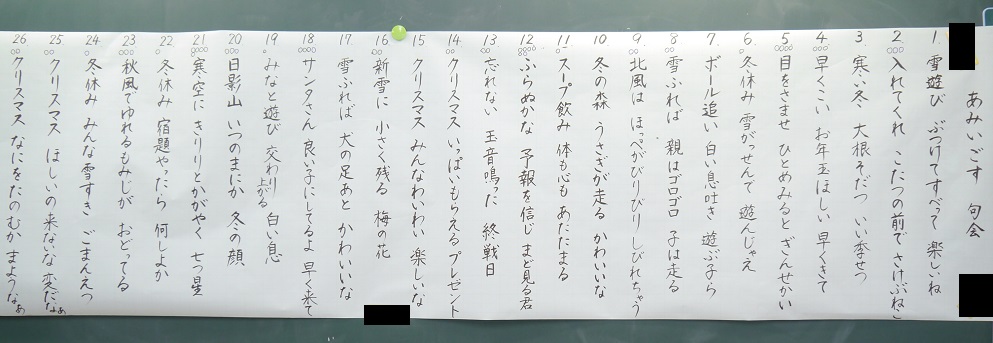 あみいごす　句会
1. 雪遊び　ぶつけてすべって　楽しいね
2. 入れてくれ　こたつの前で　さけぶねこ
3. 寒い冬　大根そだつ　いい季せつ
4. 早くこい　お年玉ほしい　早くきて
5. 目をさませ　ひとめみると　ぎんせかい
6. 冬休み　雪がっせんで　遊んじゃえ
7. ボール追い　白い息吐き　遊ぶ子ら
8. 雪ふれば　親はゴロゴロ　子は走る
9. 北風は　ほっぺがびりびり　しびれちゃう
10. 冬の森　うさぎが走る　かわいいな
11. スープ飲み　体も心も　あたたまる
12. ふらぬかな　予報を信じ　まど見る君
13. 忘れない　玉音鳴った　終戦日
14. クリスマス　いっぱいもらえる　プレゼント
15. クリスマス　みんなわいわい　楽しいな
16. 新雪に　小さく残る　梅の花
17. 雪ふれば　犬の足あと　かわいいな
18. サンタさん　良い子にしてるよ　早く来て
19. みなと遊び　交わり上がる　白い息
20. 日影山　いつのまにか　冬の顔
21. 寒空に　きりりとかがやく　七つ星
22. 冬休み　宿題やったら　何しよか
23. 秋風で　ゆれるもみじが　おどってる
24. 冬休み　みんな雪すき　ごまんえつ
25. クリスマス　ほしいの来ないな　変だなぁ
26. クリスマス　なにをたのむか　まようなぁ